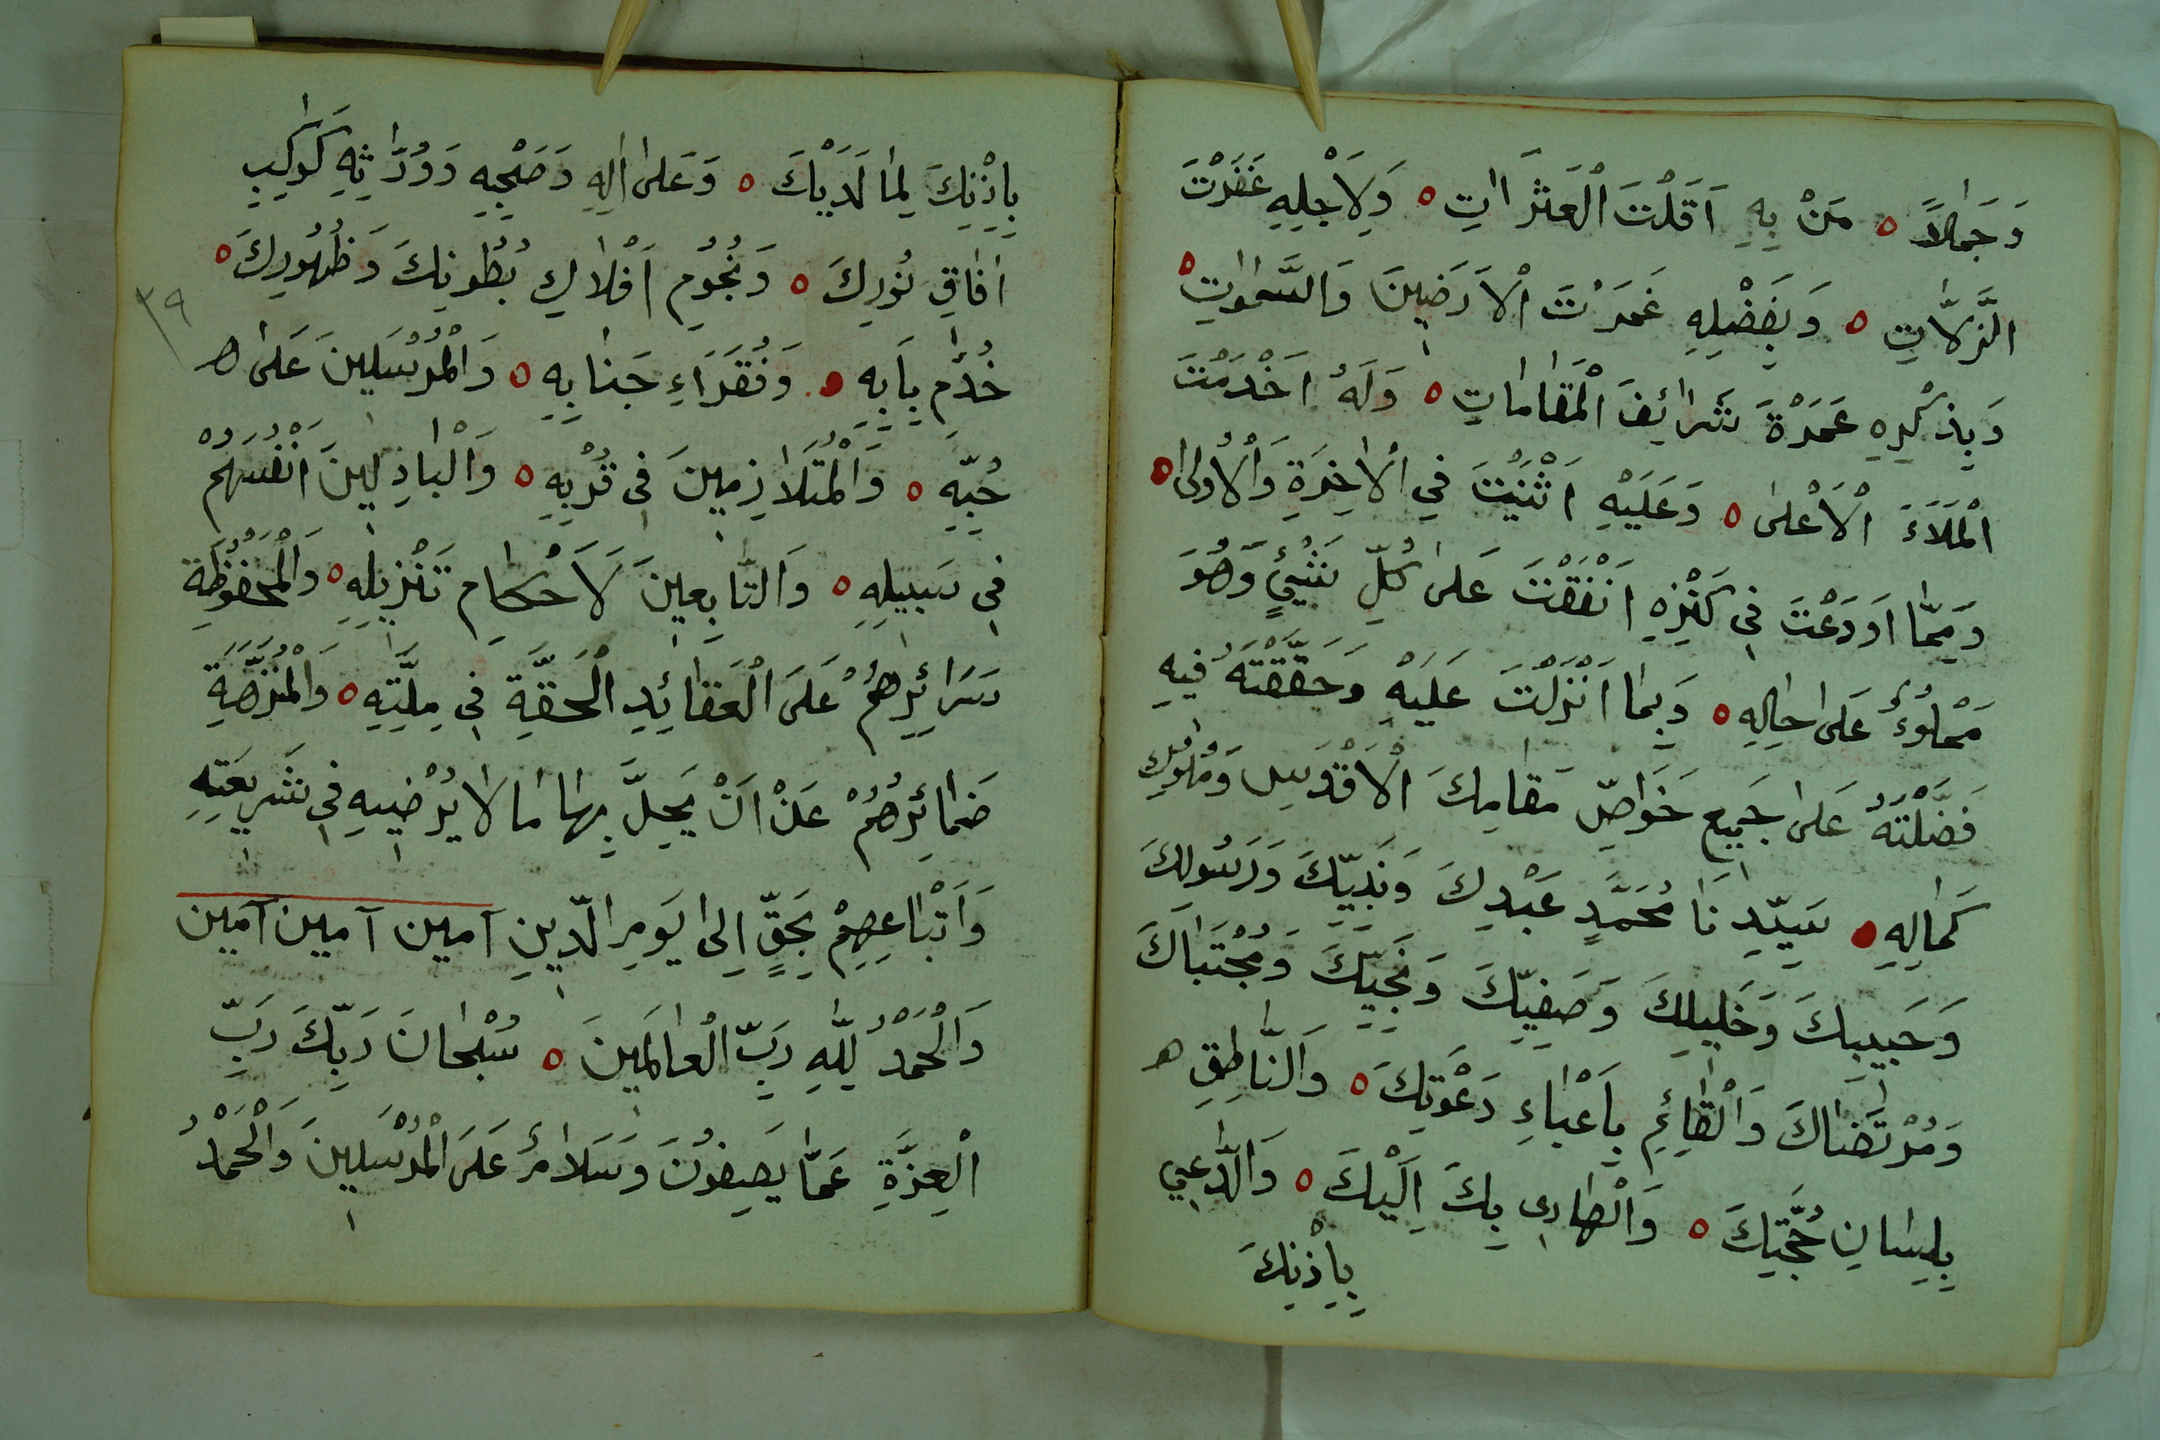 وَجَمَالاً ه مَنْ بِهِ اَقَلْتَ الْعَثَرَاتِ ه وَلِاَجْلِهِ غَفَرْتَ
الزَّلَّاتِ ه وَبِفَضْلِهِ غَمَرْتَ الْاَرَضِينَ وَالسَّمٰوٰتِ ه
وَبِذِكْرِهِ عَمَرْةَ شَرَائِفَ الْمَقَامَاتِ ه وَلَهُ اَخْدَمْتَ
الْمَلَاَءَ الْاَعْلىٰ ه وَعَلَيْهِ اَثْنَيْتَ فِي الْاٰخِرَةِ وَالْاُولىٰ ه
وَمِمَّا اَوْدَعْتَ فِي كَنْزِهِ اَنْفَقْتَ عَلىٰ كُلِّ شَيْئٍ وَهُوَ
مَمْلُوءٌ عَلىٰ حَالِهِ ه وَبِمَا اَنْزَلْتَ عَلَيْهِ وَحَقَّقْتَهُ فِيهِ
فَضَّلْتَهُ عَلىٰ جَمِيعِ خَوَاصِّ مَقَامِكَ الْاَقْدَسِ وَمُلُوكِ
كَمَالِهِ ه سَيِّدِنَا مُحَمَّدٍ عَبْدِكَ وَنَبِيِّكَ وَرَسُولِكَ
وَحَبِيبِكَ وَخَلِيلِكَ وَصَفِيِّكَ وَنَجِيِّكَ وَمُجْتَبَاكَ
وَمُرْتَضَاكَ وَالْقَائِمِ بِاَعْبَاءِ دَعْوَتِكَ ه وَالنَّاطِقِ ه
بِلِسَانِ حُجَّتِكَ ه وَالْهَادِي بِكَ اِلَيْكَ ه وَالدَّاعِي
بِاِذْنِكَ
بِاِذْنِكَ لِمَا لَدَيْكَ ه وَعَلىٰ اٰلِهِ وَصَحْبِهِ وَوُرَّاثِهِ كَوَاكِبِ
اٰفَاقِ نُورِكَ ه وَنُجُومِ اَفْلَاكِ بُطُونِكَ وَظُهُورِكَ ه
٣٩
خُدَّامِ بَابِهِ ه وَفُقَرَاءِ جَنَابِهِ ه وَالْمُرْسَلِينَ عَلىٰ ه
حُبِّهِ ه وَالْمُتَلَازِمِينَ فِي قُرْبِهِ ه وَالْبَاذِلِينَ اَنْفُسَهُمْ
فِي سَبِيلِهِ ه وَالتَّابِعِينَ لَاَحْكَامِ تَنْزِيلِهِ ه وَالْمَحْفُوظَةِ
سَرَائِرِهُمْ عَلَى الْعَقَائِدِ الْحَقَّةِ فِي مِلَّتِهِ ه وَالْمُنَزَّهَةِ
ضَمَائِرِهُمْ عَنْ اَنْ يَحِلَّ بِهَا مَا لَا يُرْضِيهِ فِي شَرِيعَتِهِ
وَاَتْبَاعِهِمْ بِحَقٍّ اِلىٰ يَومِ الدِّينِ آمين آمين آمين
وَالْحَمْدُ لِلّٰهِ رَبِّ الْعَالَمِينَ ه سُبْحَانَ رَبِّكَ رَبِّ
الْعِزَّةِ عَمَّا يَصِفُونَ وَسَلَامٌ عَلَى الْمُرْسَلِينَ وَالْحَمْدُ